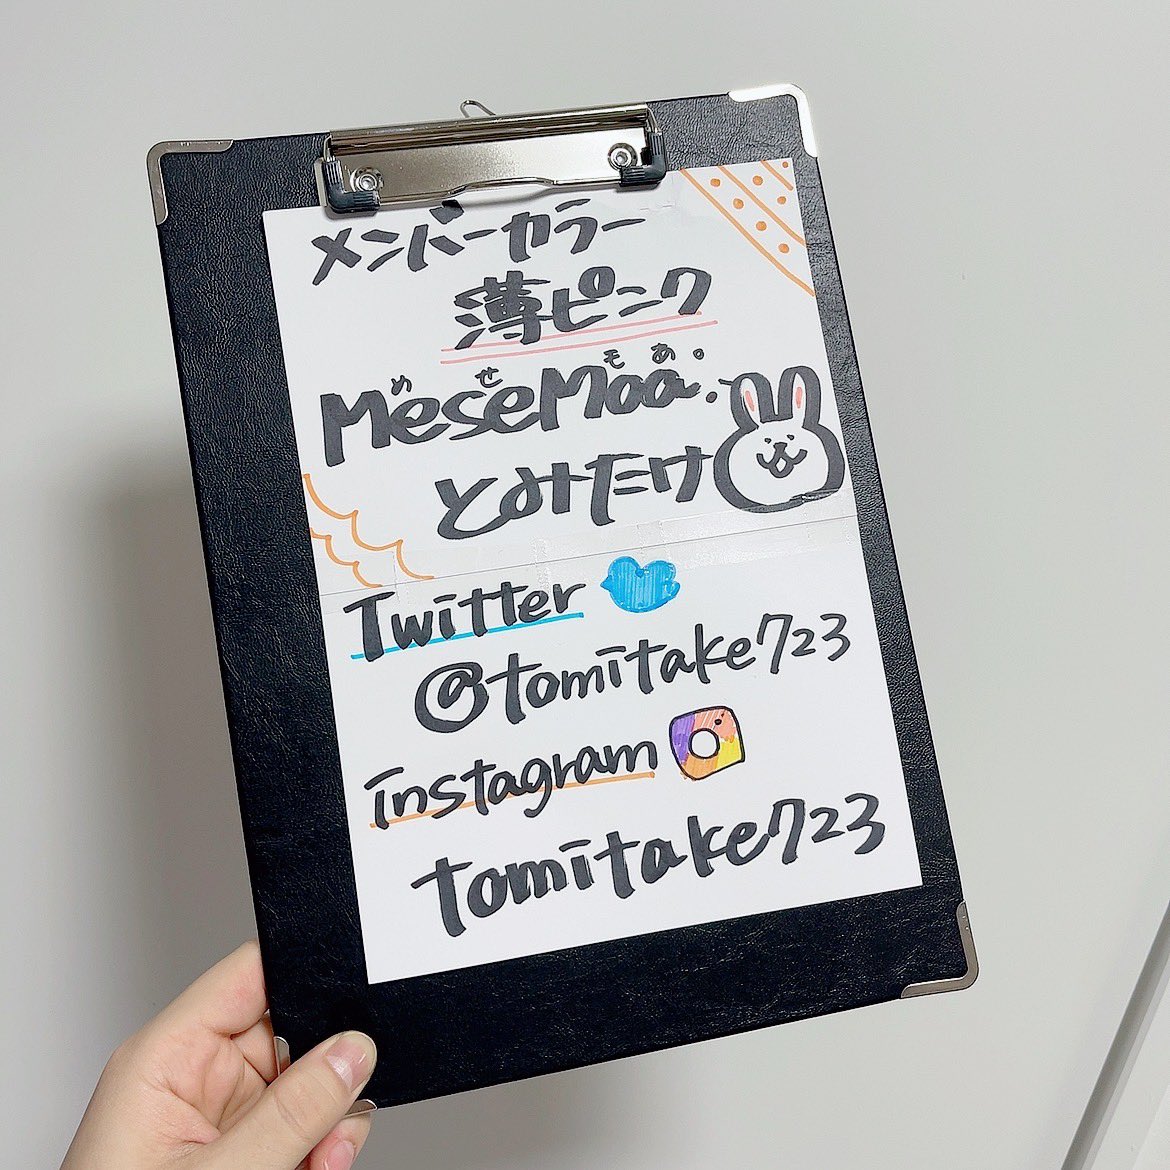 メンバーカラー
薄ピンク
めせモあ。
MeseMoa.
とみたけ
Twitter
@tomitake723
instagram
tomitake723